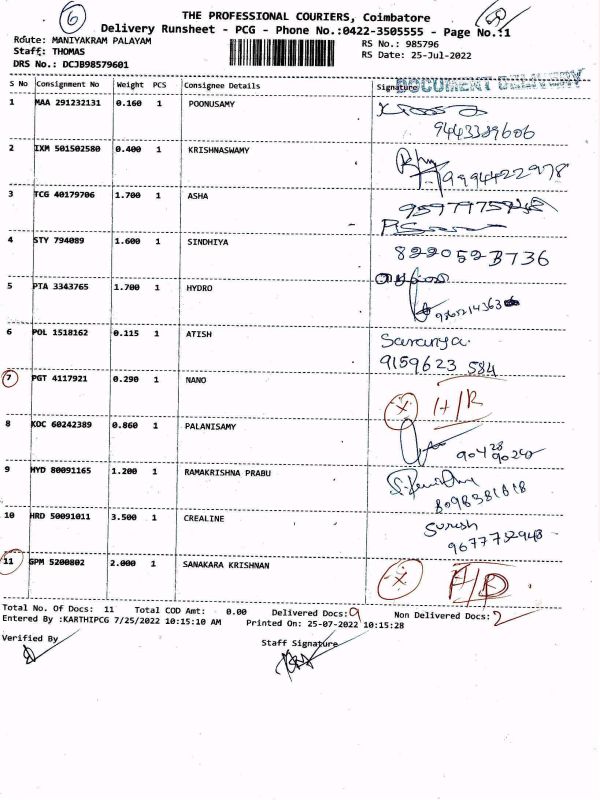 6
THE PROFESSIONAL COURIERS, Coimbatore
Delivery Runsheet - PCG - Phone No.:0422-3505555 - Page No.:1
Route: MANIYAKRAM PALAYAM
RS No.: 985796
Staff: THOMAS
RS Date: 25-Jul-2022
DRS No.: DCJB98579601
DOCUMENT DELIVERY
S No Consignment No Weight PCS Consignee Details Signature
1 MAA 291232131 0.160 1 POONUSAMY
9443389606
2 IXM 501502580 0.400 1 KRISHNASWAMY
9994422978
3 TCG 40179706 1.700 1 ASHA
4 STY 794089 1.600 1 SINDHIYA
5 PTA 3343765 1.700 1 HYDRO
6 POL 1518162 0.115 1 ATISH Saranya
9159623 584
7 PGT 4117921 0.290 1 NANO X H/R
8 KOC 60242389 0.860 1 PALANISAMY
9 HYD 80091165 1.200 1 RAMAKRISHNA PRABU
8098381818
10 HRD 50091011 3.500 1 CREALINE Suresh
9677732948
11 GPM 5200802 2.000 1 SANAKARA KRISHNAN X
Total No. Of Docs: 11 Total COD Amt: 0.00 Delivered Docs: 9 Non Delivered Docs: 2
Entered By :KARTHIPCG 7/25/2022 10:15:10 AM Printed On: 25-07-2022 10:15:28
Verified By
Staff Signature